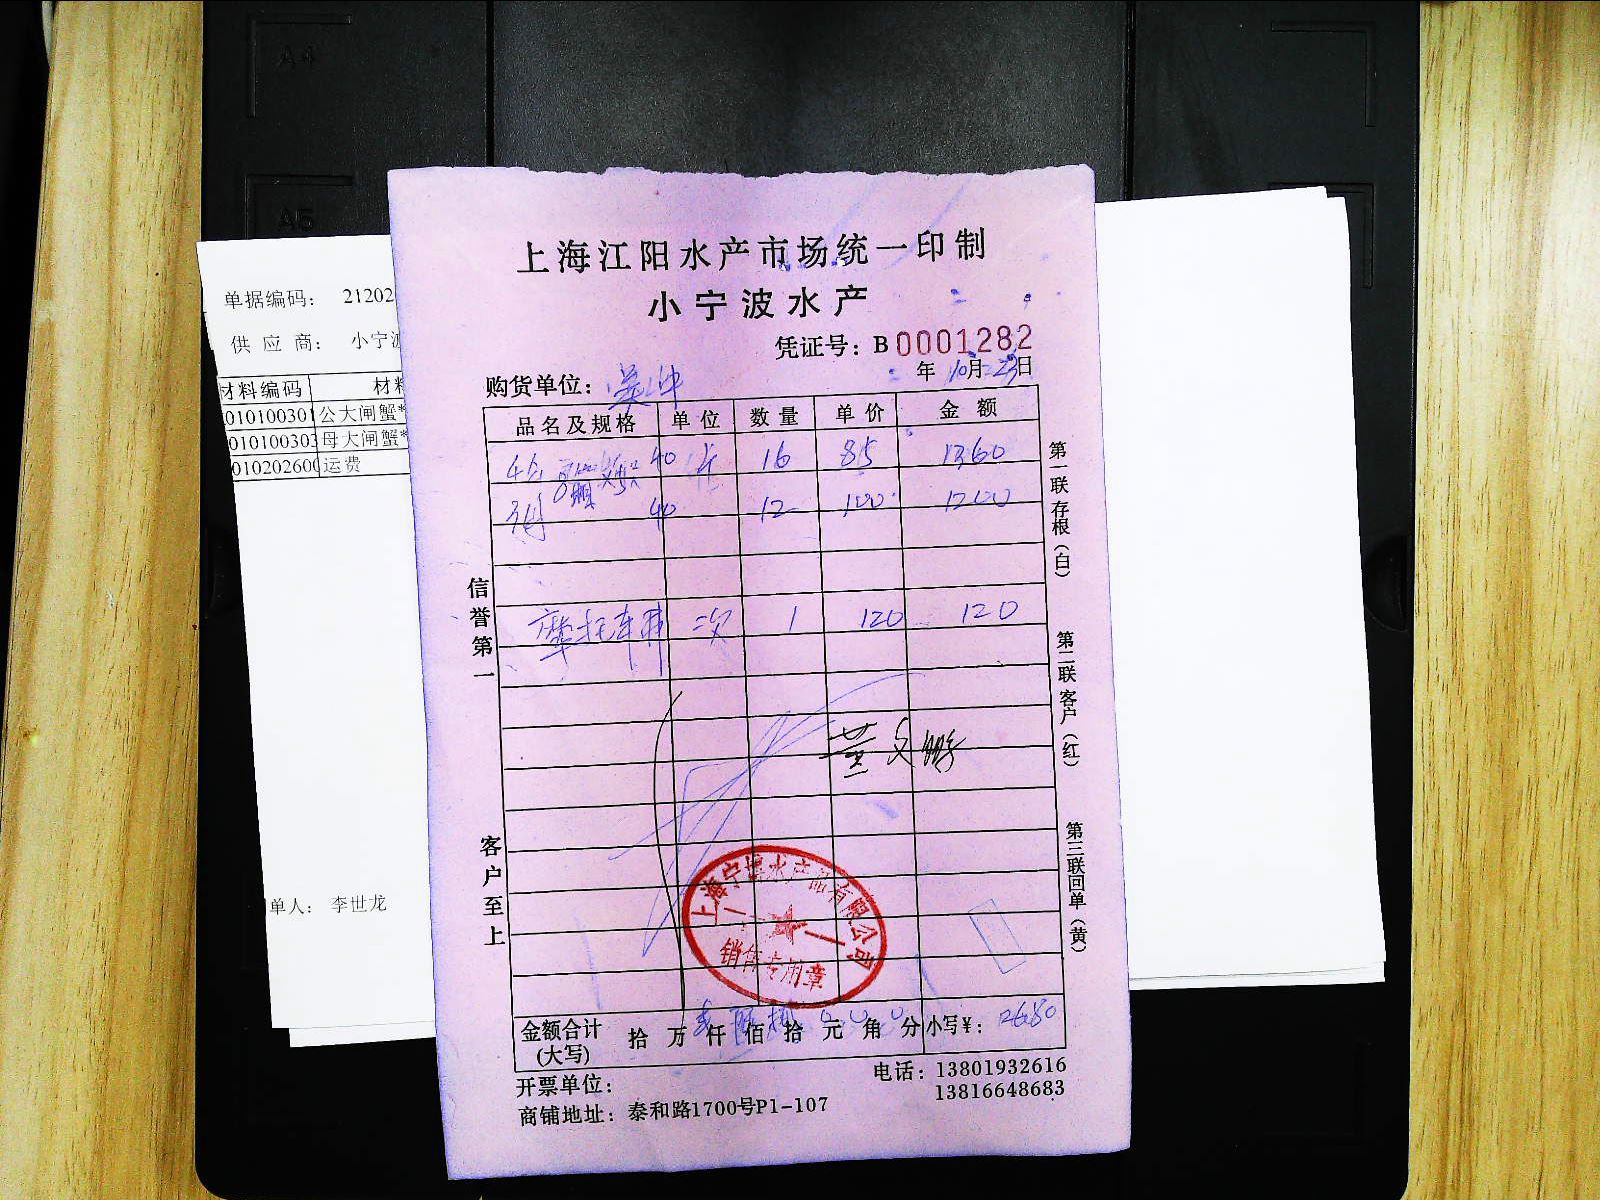 A4
A5
单据编码： 21202
供 应 商： 小宁波
材料编码 材料
010100301 公大闸蟹*
010100303 母大闸蟹*
010202600 运费
单人： 李世龙
上海江阳水产市场统一印制
小宁波水产
凭证号：B0001282
年 10月23日
购货单位：
品名及规格 单位 数量 单价 金额
4公 40 只 16 85 1360
3母 40 12 100 1200
摩托车费 次 1 120 120
黄文
上海宁波水产品有限公司
销售专用章
金额合计
(大写)
拾 万 仟 佰 拾 元 角 分 小写¥：2680
开票单位：
电话：13801932616
13816648683
商铺地址：泰和路1700号P1-107
信誉第一
客户至上
第一联存根（白）
第二联客户（红）
第三联回单（黄）